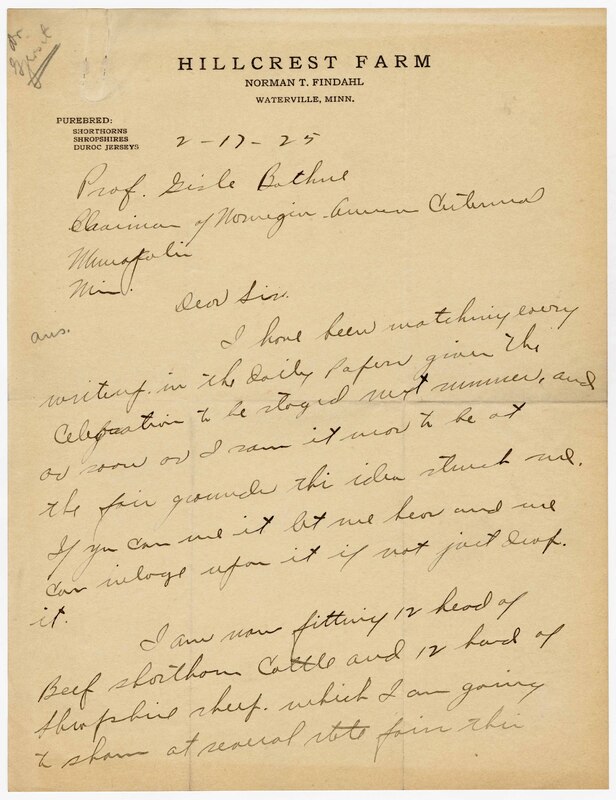 Dr.
Gjerset
HILLCREST FARM
NORMAN T. FINDAHL
WATERVILLE, MINN.
PUREBRED:
SHORTHORNS
SHROPSHIRES
DUROC JERSEYS
2-17-25
Prof. Gisle Bothne
Chairman of Norwegin-American Centennial
Minneapolis
Min.
Dear Sir.
ans.
I have been watching every
writeup in the Daily Papers given the
Celebration to be staged next summer, and
as soon as I saw it was to be at
the fair grounds this idea struck me.
If you can use it let me hear and we
can inlarge upon it if not just drop
it.
I am now fitting 12 head of
Beef Shorthorn Cattle and 12 head of
Shropshire sheep. which I am going
to show at several state fairs this